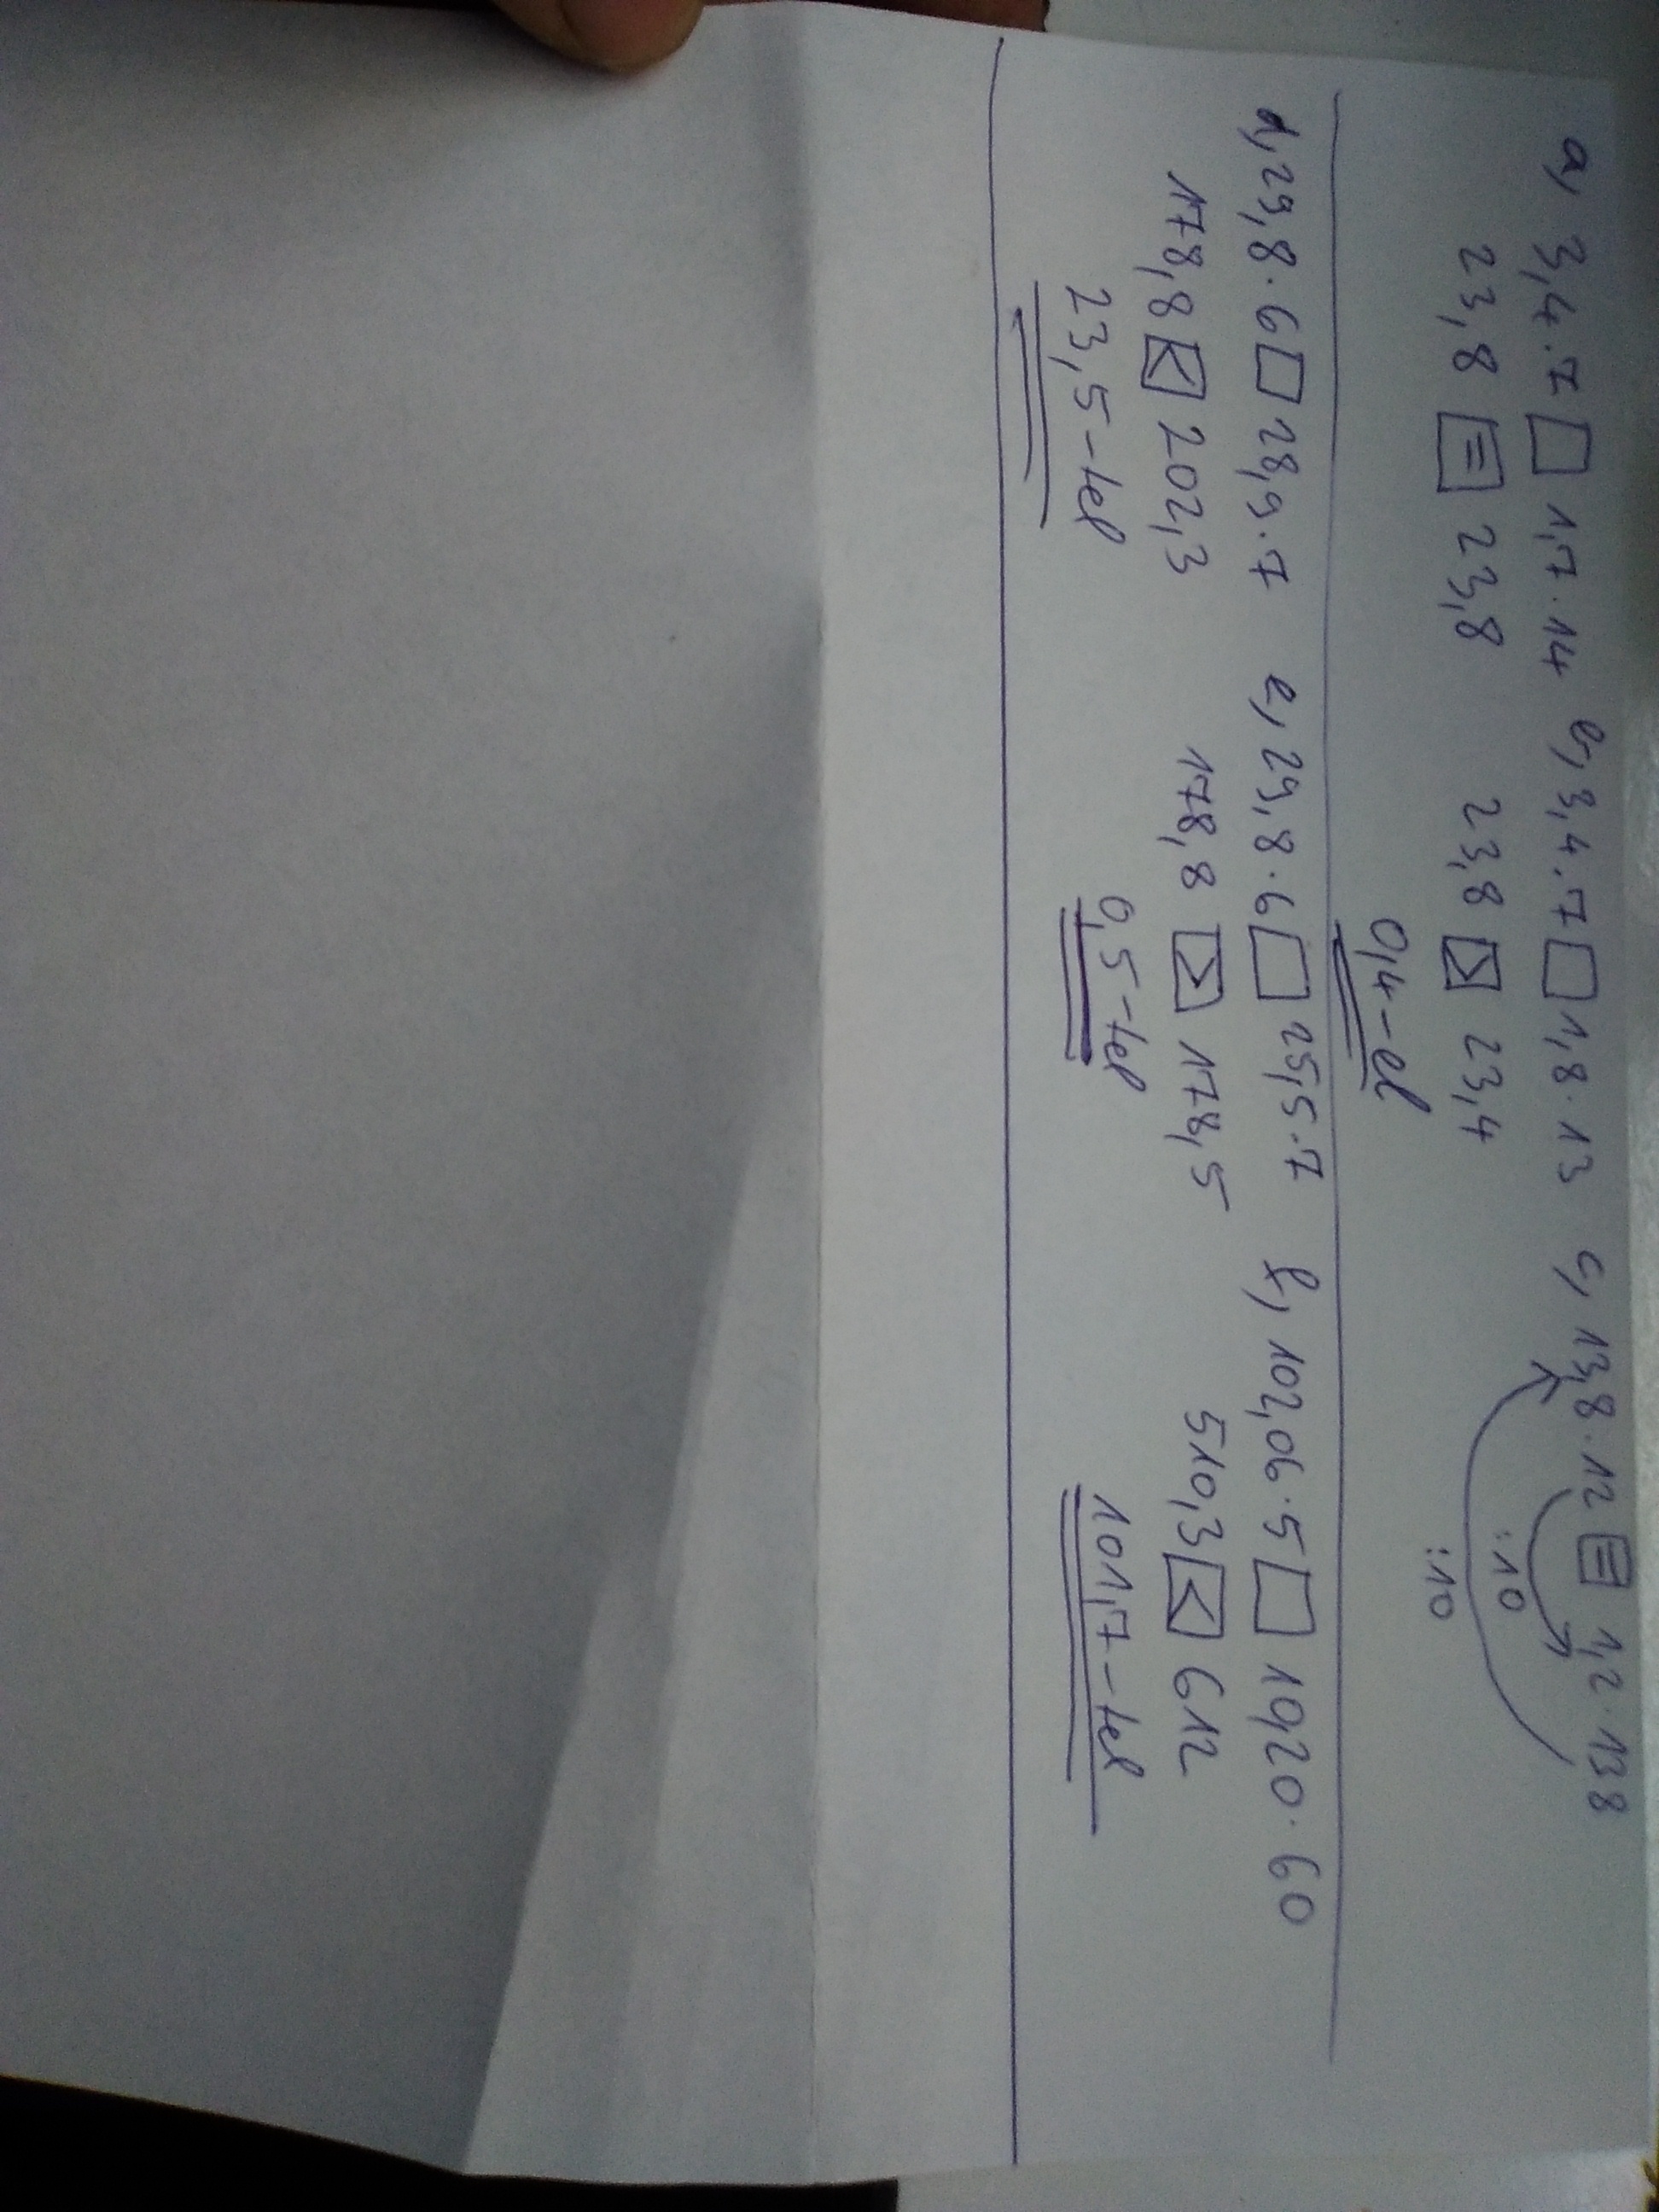 a, 3,4·7 □ 1,7·14 b, 3,4·7 □ 1,8·13 c, 13,8·12 = 1,2·138
23,8 = 23,8 23,8 > 23,4 :10
:10
0,4-el
d, 29,8·6 □ 28,9·7 e, 29,8·6 □ 25,5·7 f, 102,06·5 □ 10,20·60
178,8 < 202,3 178,8 > 178,5 510,3 < 612
23,5-tel 0,5-tel 101,7-tel